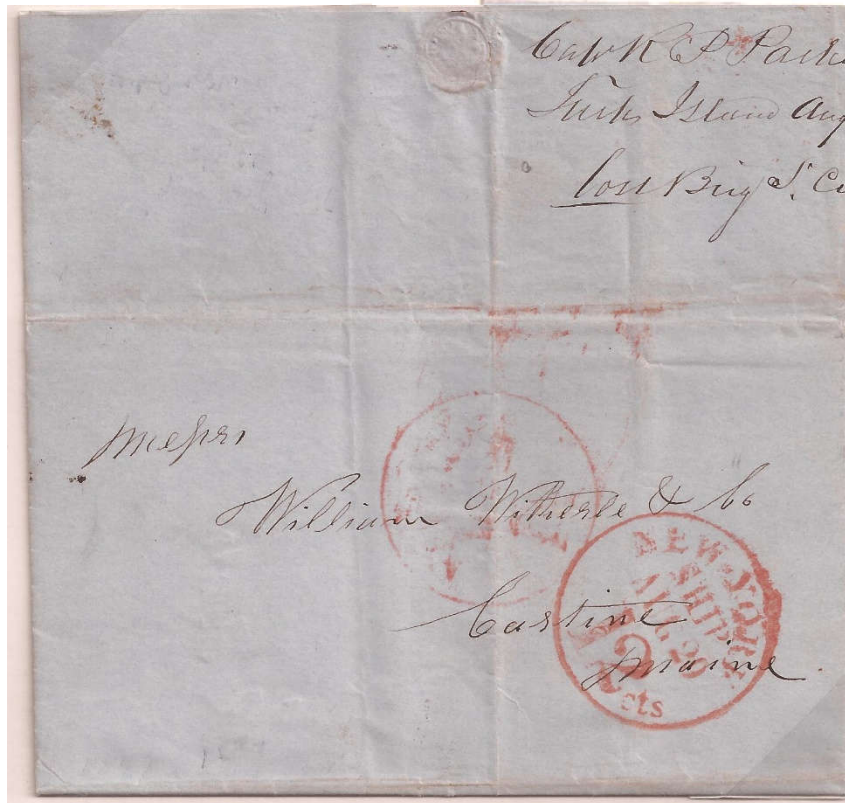 Capt R P Park
Turks Island Aug
Cost Brig S. C
Messrs
William Witherle & Co
Castine
Maine
NEW-YORK
SHIP
AUG 29
12
cts